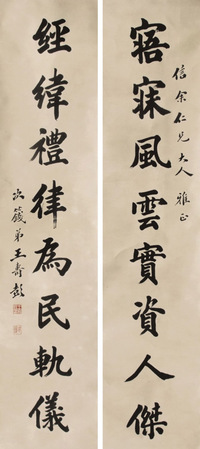 信余仁兄大人 雅正
寤寐風雲實資人傑
經緯禮律為民軌儀
次籛弟王壽彭